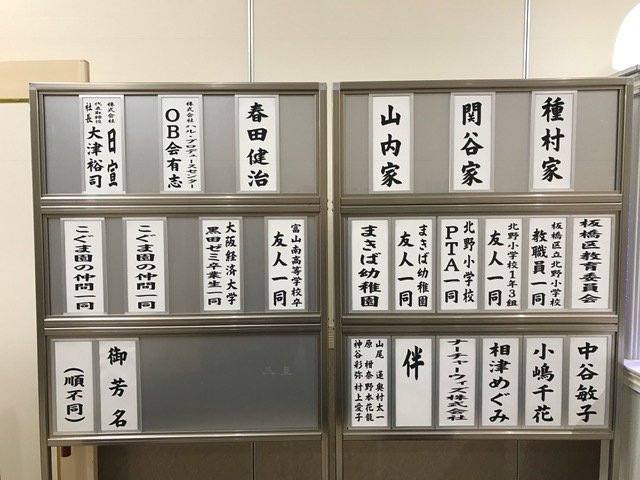 種村家
関谷家
山内家
春田健治
株式会社ハル・プロデュースセンター
OB会有志
株式会社
日宣
代表取締役
社長
大津裕司
板橋区教育委員会
板橋区立北野小学校
教職員一同
北野小学校1年3組
友人一同
北野小学校
PTA一同
まきば幼稚園
友人一同
まきば幼稚園
富山南高等学校卒
友人一同
大阪経済大学
黒田ゼミ卒業生一同
こぐま園の仲間一同
こぐま園の仲間一同
中谷敏子
小嶋千花
相津めぐみ
ナーチャーウィズ株式会社
伴
奥村太一
野本花龍
村上愛子
山尾 蓮
原 柑奈
神谷彩弥
御芳名
(順不同)